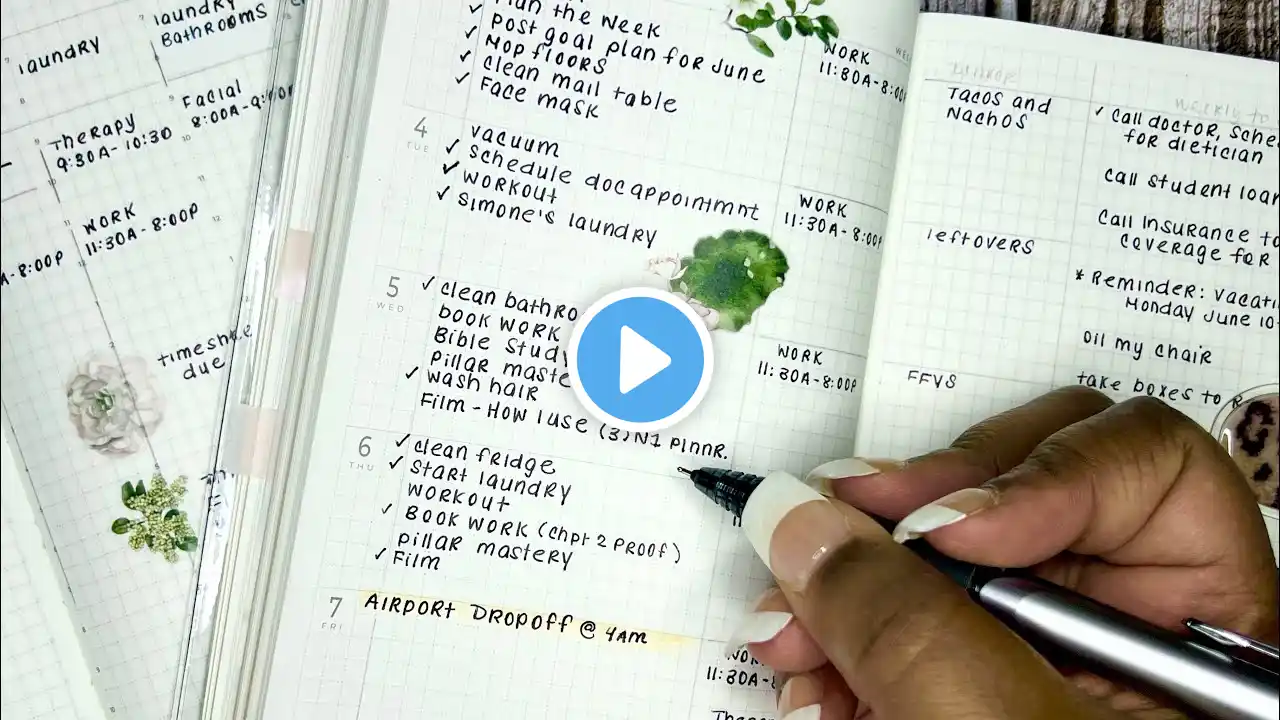 laundry
laundry
BATHROOMS
Therapy
9:30A-10:30
Facial
8:00A-9:
WORK
11:30A-8:00P
A-8:00P
timeshare
due
Plan the week
Post goal plan for June
✓ Mop floors
✓ clean mail table
✓ Face mask
WORK
11:30A-8:00
4
TUE
vacuum
✓ schedule doc appointmnt
✓ workout
✓ Simone's laundry
WORK
11:30A-8:00P
5
WED
✓ clean bathro
book work
Bible Study
Pillar maste
✓ wash hair
Film - How I use (3)N1 Plnnr.
WORK
11:30A-8:00P
6
THU
✓ clean fridge
✓ Start laundry
workout
✓ Book work (chpt 2 Proof)
pillar mastery
✓ Film
7
FRI
AIRPORT DROPOFF @ 4AM
WORK
11:30A-8
Dinner
Weekly to
Tacos and
Nachos
✓ Call doctor, sche
for dietician
Call student loan
Call Insurance to
coverage for
leftovers
* Reminder: vacati
Monday June 10
Oil my chair
FFYS
take boxes to R